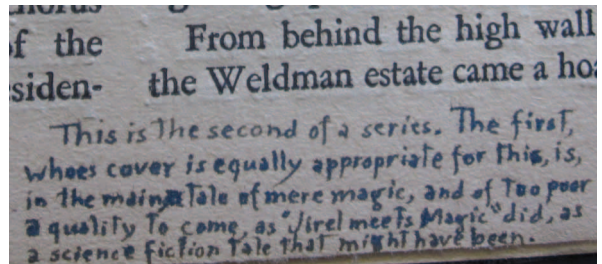 of the From behind the high wall
siden- the Weldman estate came a hoa
This is the second of a series. The first,
whoes cover is equally appropriate for this, is,
in the main a tale of mere magic, and of too poor
a quality to come, as "Jirel meets Magic" did, as
a science fiction tale that might have been.